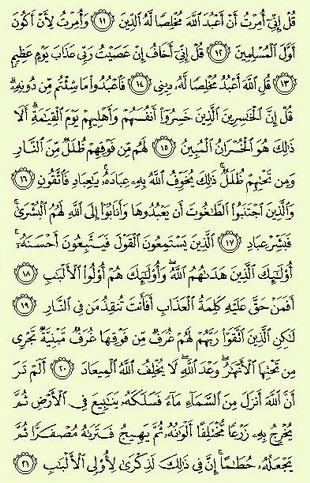 قُلْ إِنِّىٓ أُمِرْتُ أَنْ أَعْبُدَ ٱللَّهَ مُخْلِصًا لَّهُ ٱلدِّينَ ﴿١١﴾ وَأُمِرْتُ لِأَنْ أَكُونَ
أَوَّلَ ٱلْمُسْلِمِينَ ﴿١٢﴾ قُلْ إِنِّىٓ أَخَافُ إِنْ عَصَيْتُ رَبِّى عَذَابَ يَوْمٍ عَظِيمٍ
﴿١٣﴾ قُلِ ٱللَّهَ أَعْبُدُ مُخْلِصًا لَّهُۥ دِينِى ﴿١٤﴾ فَٱعْبُدُوا۟ مَا شِئْتُم مِّن دُونِهِۦ ۗ
قُلْ إِنَّ ٱلْخَـٰسِرِينَ ٱلَّذِينَ خَسِرُوٓا۟ أَنفُسَهُمْ وَأَهْلِيهِمْ يَوْمَ ٱلْقِيَـٰمَةِ ۗ أَلَا
ذَٰلِكَ هُوَ ٱلْخُسْرَانُ ٱلْمُبِينُ ﴿١٥﴾ لَهُم مِّن فَوْقِهِمْ ظُلَلٌ مِّنَ ٱلنَّارِ
وَمِن تَحْتِهِمْ ظُلَلٌ ۚ ذَٰلِكَ يُخَوِّفُ ٱللَّهُ بِهِۦ عِبَادَهُۥ ۚ يَـٰعِبَادِ فَٱتَّقُونِ ﴿١٦﴾
وَٱلَّذِينَ ٱجْتَنَبُوا۟ ٱلطَّـٰغُوتَ أَن يَعْبُدُوهَا وَأَنَابُوٓا۟ إِلَى ٱللَّهِ لَهُمُ ٱلْبُشْرَىٰ ۚ
فَبَشِّرْ عِبَادِ ﴿١٧﴾ ٱلَّذِينَ يَسْتَمِعُونَ ٱلْقَوْلَ فَيَتَّبِعُونَ أَحْسَنَهُۥٓ ۚ
أُو۟لَـٰٓئِكَ ٱلَّذِينَ هَدَىٰهُمُ ٱللَّهُ ۖ وَأُو۟لَـٰٓئِكَ هُمْ أُو۟لُوا۟ ٱلْأَلْبَـٰبِ ﴿١٨﴾
أَفَمَنْ حَقَّ عَلَيْهِ كَلِمَةُ ٱلْعَذَابِ أَفَأَنتَ تُنقِذُ مَن فِى ٱلنَّارِ ﴿١٩﴾
لَـٰكِنِ ٱلَّذِينَ ٱتَّقَوْا۟ رَبَّهُمْ لَهُمْ غُرَفٌ مِّن فَوْقِهَا غُرَفٌ مَّبْنِيَّةٌ تَجْرِى
مِن تَحْتِهَا ٱلْأَنْهَـٰرُ ۖ وَعْدَ ٱللَّهِ ۖ لَا يُخْلِفُ ٱللَّهُ ٱلْمِيعَادَ ﴿٢٠﴾ أَلَمْ تَرَ
أَنَّ ٱللَّهَ أَنزَلَ مِنَ ٱلسَّمَآءِ مَآءً فَسَلَكَهُۥ يَنَـٰبِيعَ فِى ٱلْأَرْضِ ثُمَّ
يُخْرِجُ بِهِۦ زَرْعًا مُّخْتَلِفًا أَلْوَٰنُهُۥ ثُمَّ يَهِيجُ فَتَرَىٰهُ مُصْفَرًّا ثُمَّ
يَجْعَلُهُۥ حُطَـٰمًا ۚ إِنَّ فِى ذَٰلِكَ لَذِكْرَىٰ لِأُو۟لِى ٱلْأَلْبَـٰبِ ﴿٢١﴾